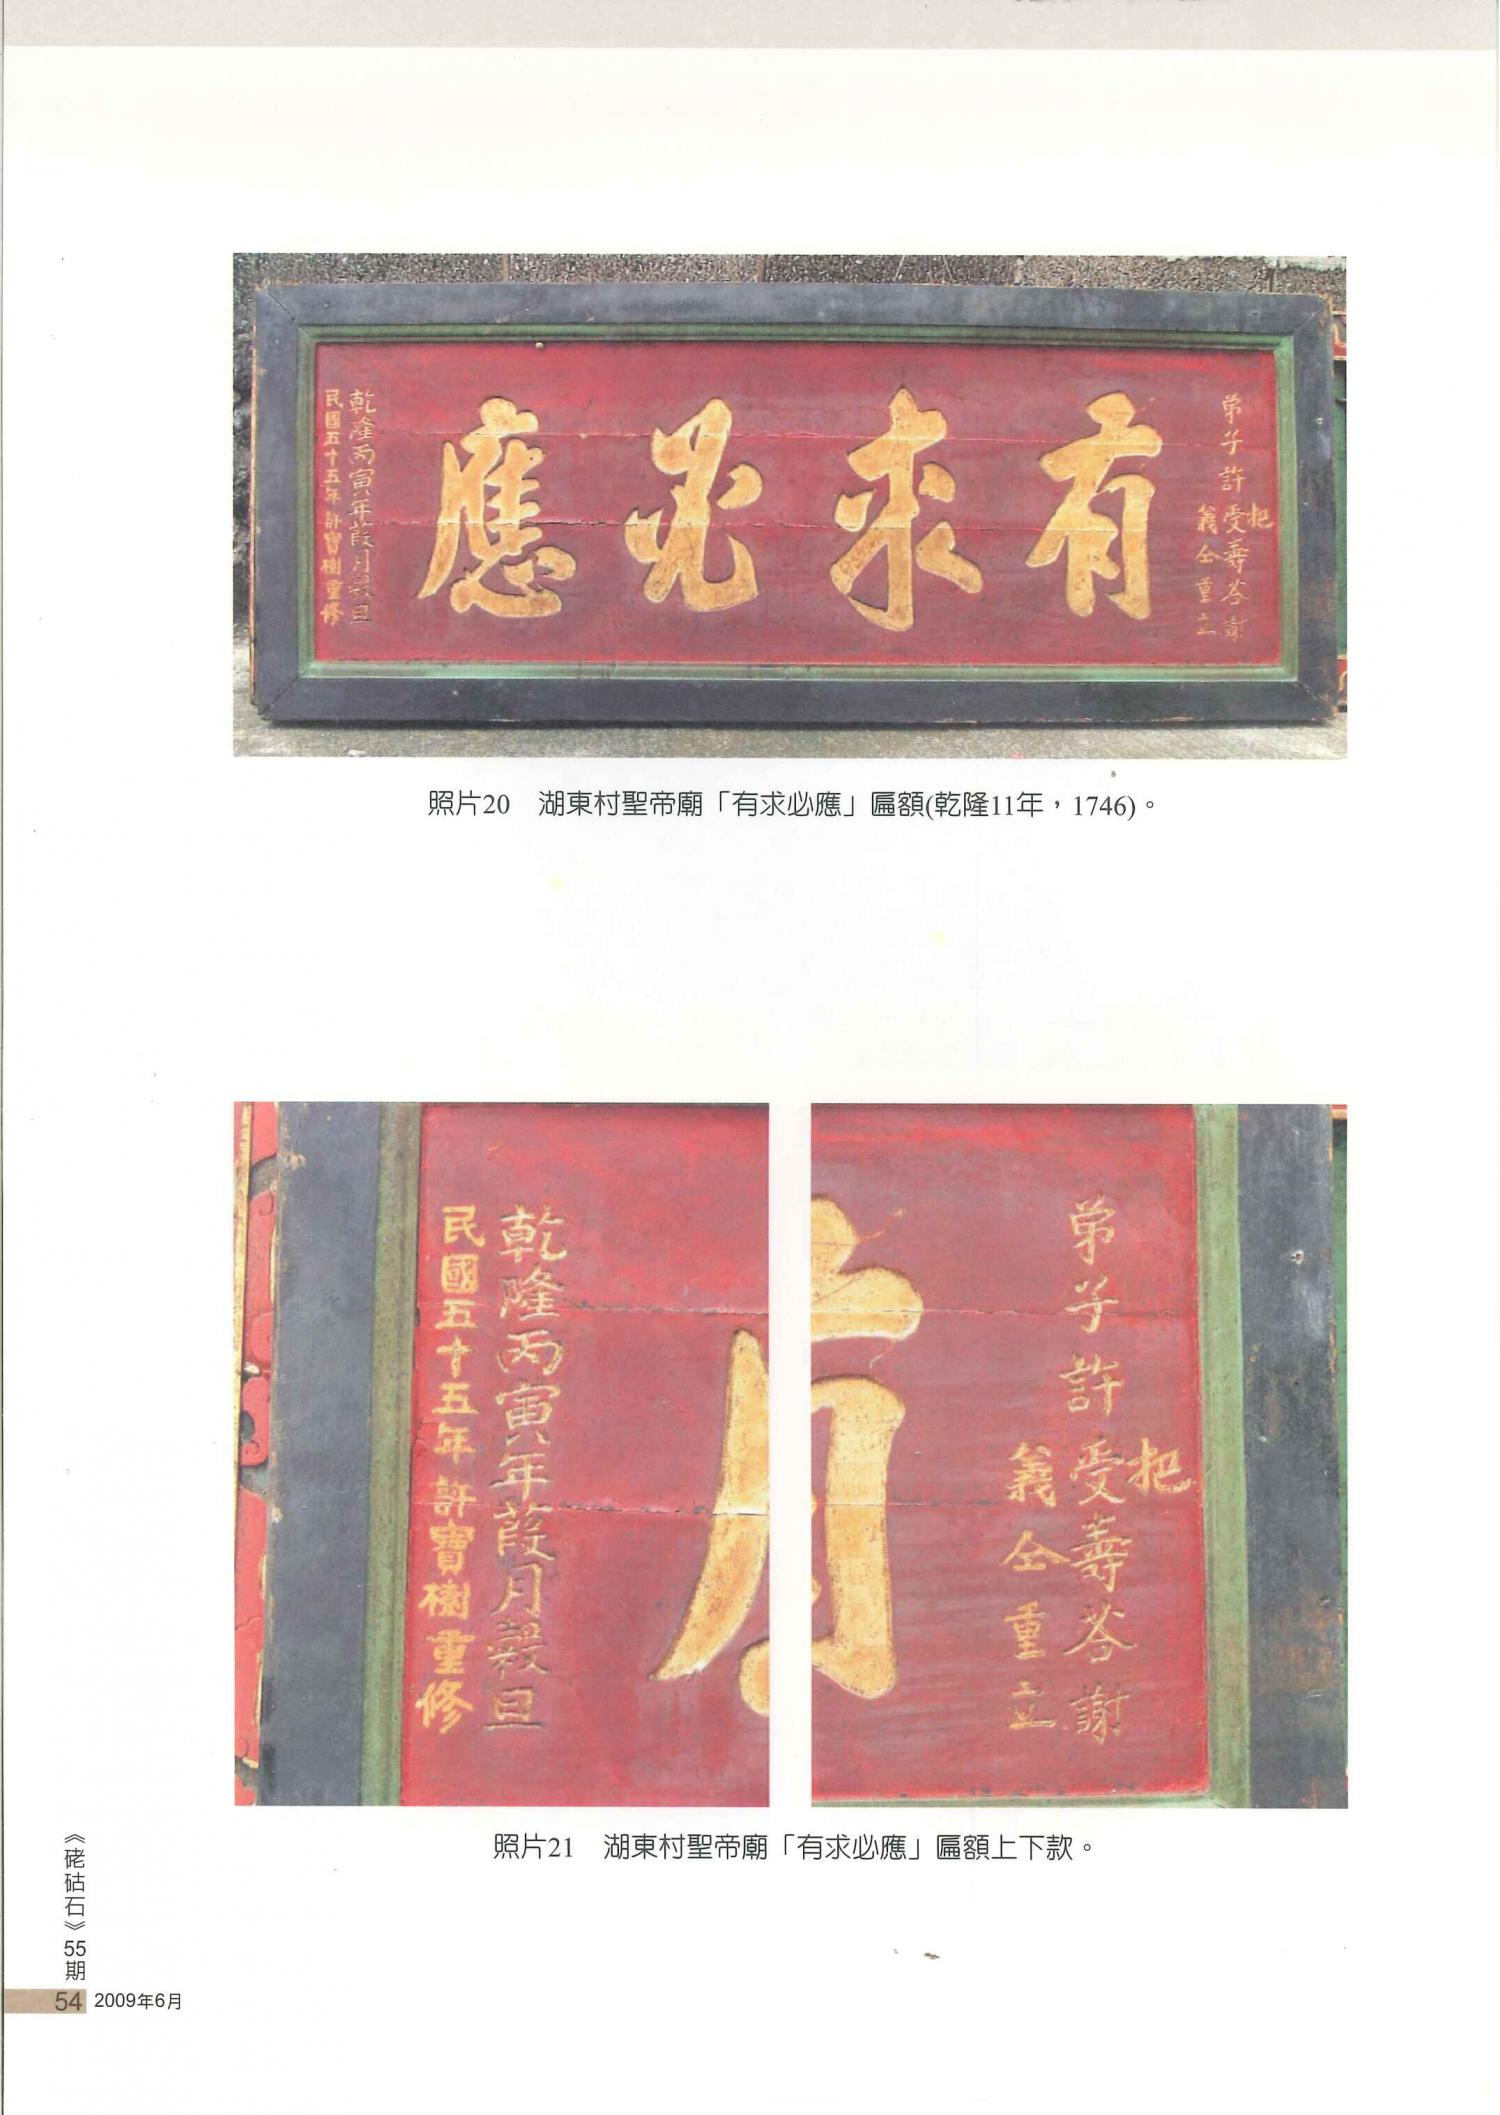 有求必應
弟子許
把
受壽荅謝
義仝重立
乾隆丙寅年葭月穀旦
民國五十五年許寶樹重修
照片20　湖東村聖帝廟「有求必應」匾額(乾隆11年，1746)。
乾隆丙寅年葭月穀旦
民國五十五年許寶樹重修
弟子許
把
受壽荅謝
義仝重立
照片21　湖東村聖帝廟「有求必應」匾額上下款。
《硓𥑮石》55期
54 2009年6月